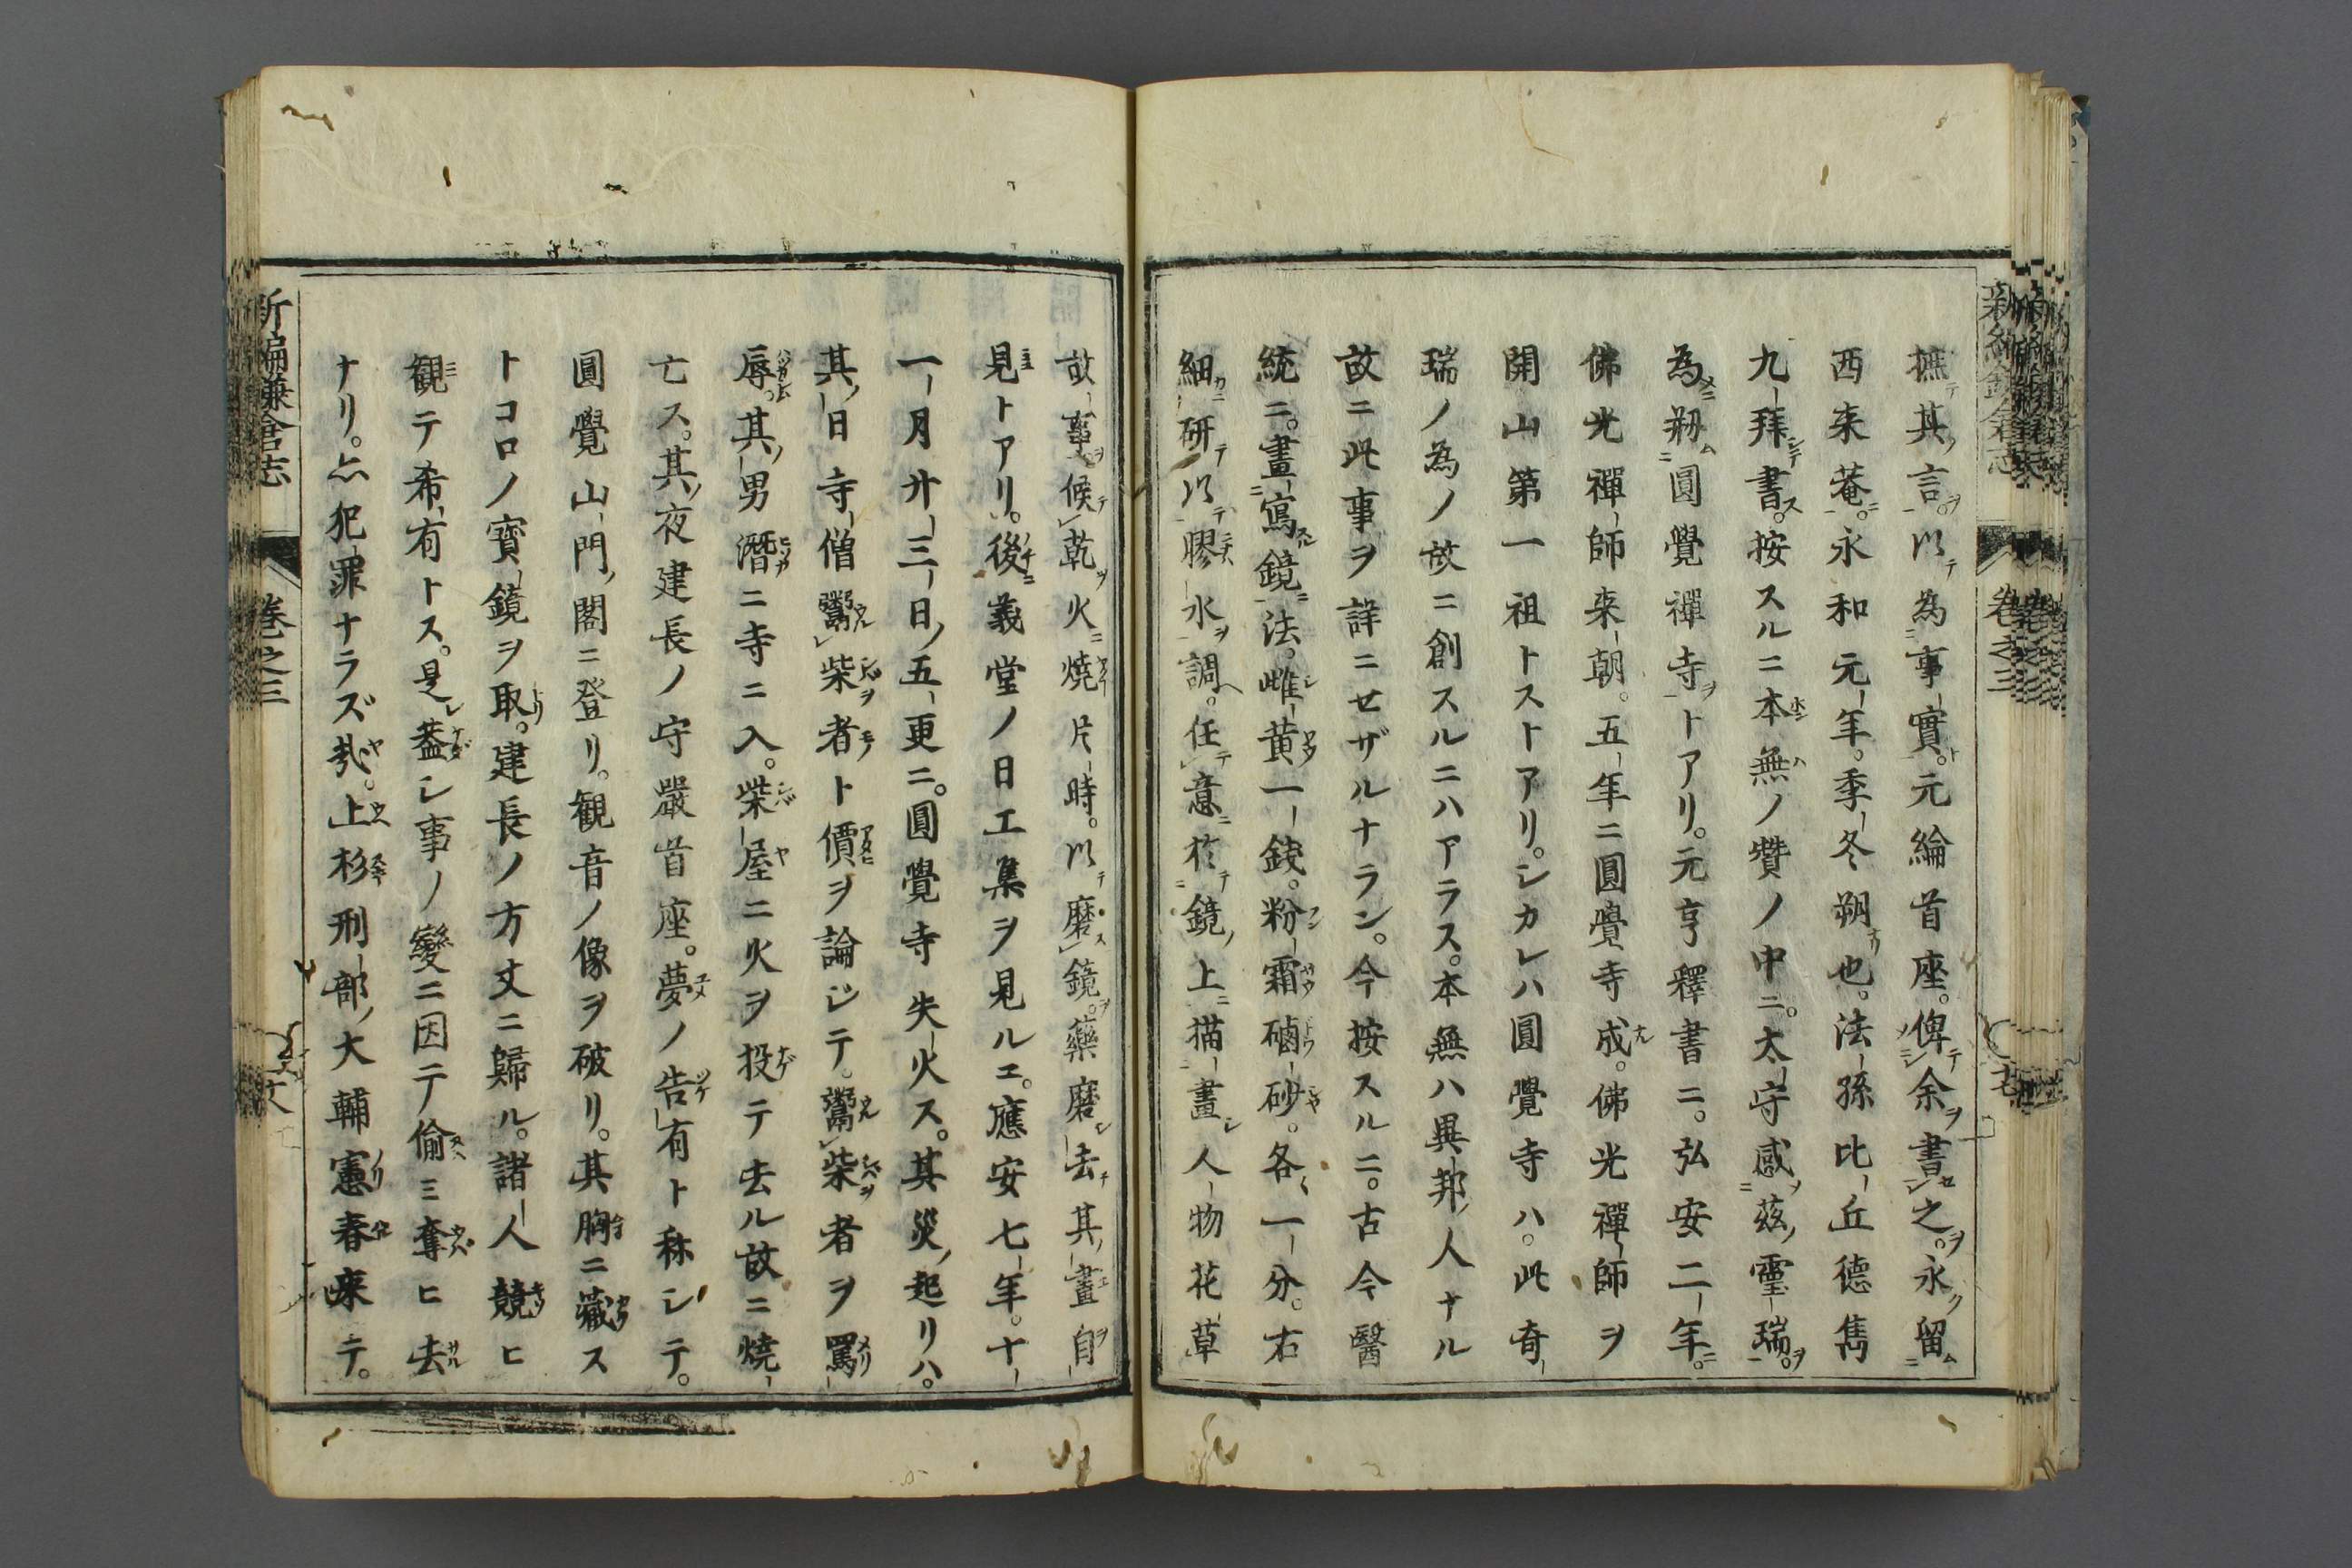 摭其言。以為事實。元綸首座。俾余書之。永留
西来菴。永和元年。季冬朔也。法孫比丘德雋
九拜書。按スルニ本無ノ贊ノ中ニ。太守感茲靈瑞。
為剏圓覺禪寺トアリ。元亨釋書ニ。弘安二年。
佛光禪師来朝。五年ニ圓覺寺成。佛光禪師ヲ
開山第一祖トストアリ。シカレハ圓覺寺ハ。此奇
瑞ノ為ノ故ニ創スルニハアラス。本無ハ異邦ノ人ナル
故ニ此事ヲ詳ニセザルナラン。今按スルニ。古今醫
統ニ。畫寫鏡法。雌黄一錢。粉霜硇砂。各一分。右
細研以膠水調。任意於鏡上描畫人物花草
故事候乾火燒片時。以磨鏡藥磨去其畫自
見トアリ。後義堂ノ日工集ヲ見ルニ。應安七年。十
一月廿三日ノ五更ニ。圓覺寺失火ス。其災ノ起リハ。
其日寺僧鬻柴者ト價ヲ論ジテ。鬻柴者ヲ罵
辱。其男潛ニ寺ニ入。柴屋ニ火ヲ投テ去ル故ニ燒
亡ス。其夜建長ノ守嚴首座。夢ノ告有ト称シテ。
圓覺山門ノ閣ニ登リ。観音ノ像ヲ破リ。其胸ニ藏ス
トコロノ寶鏡ヲ取。建長ノ方丈ニ歸ル。諸人競ヒ
観テ希有トス。是蓋シ事ノ變ニ因テ偷ミ奪ヒ去
ナリ。亦犯罪ナラズ哉。上杉刑部大輔憲春来テ。
新編鎌倉志
巻之三